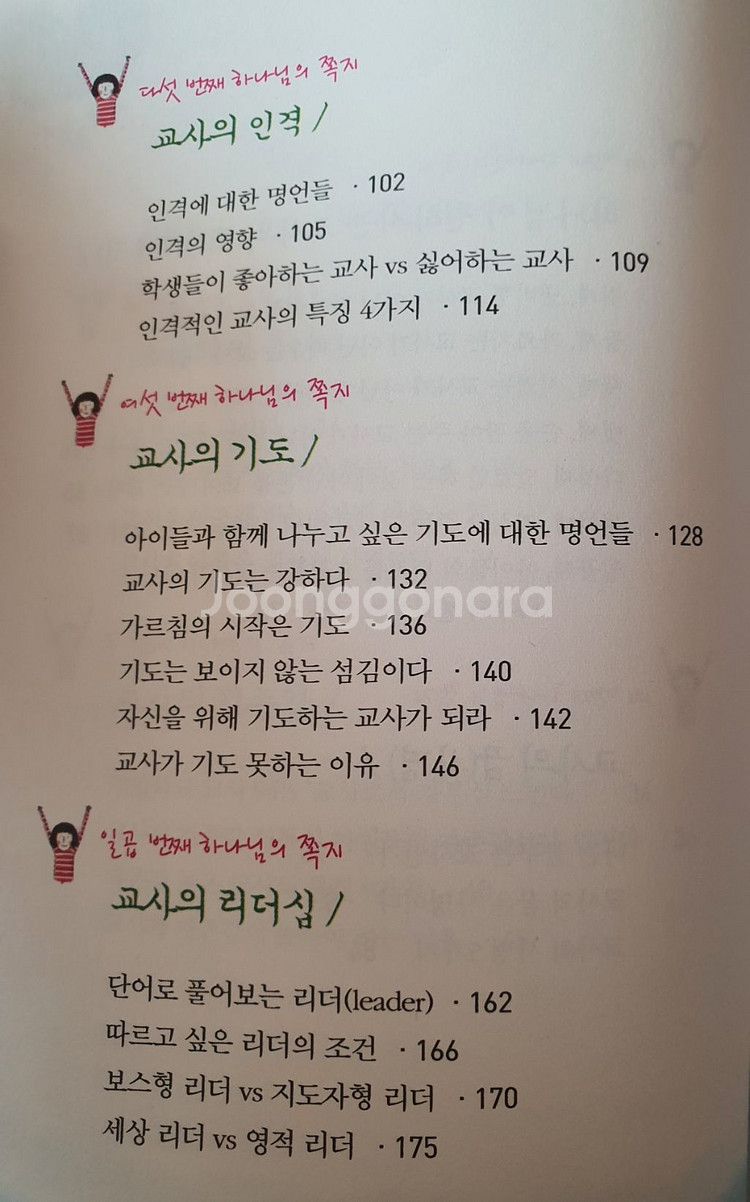 다섯 번째 하나님의 쪽지
교사의 인격 /
인격에 대한 명언들 · 102
인격의 영향 · 105
학생들이 좋아하는 교사 vs 싫어하는 교사 · 109
인격적인 교사의 특징 4가지 · 114
여섯 번째 하나님의 쪽지
교사의 기도 /
아이들과 함께 나누고 싶은 기도에 대한 명언들 · 128
교사의 기도는 강하다 · 132
Joonggonara
가르침의 시작은 기도 · 136
기도는 보이지 않는 섬김이다 · 140
자신을 위해 기도하는 교사가 되라 · 142
교사가 기도 못하는 이유 · 146
일곱 번째 하나님의 쪽지
교사의 리더십 /
단어로 풀어보는 리더(leader) · 162
따르고 싶은 리더의 조건 · 166
보스형 리더 vs 지도자형 리더 · 170
세상 리더 vs 영적 리더 · 175